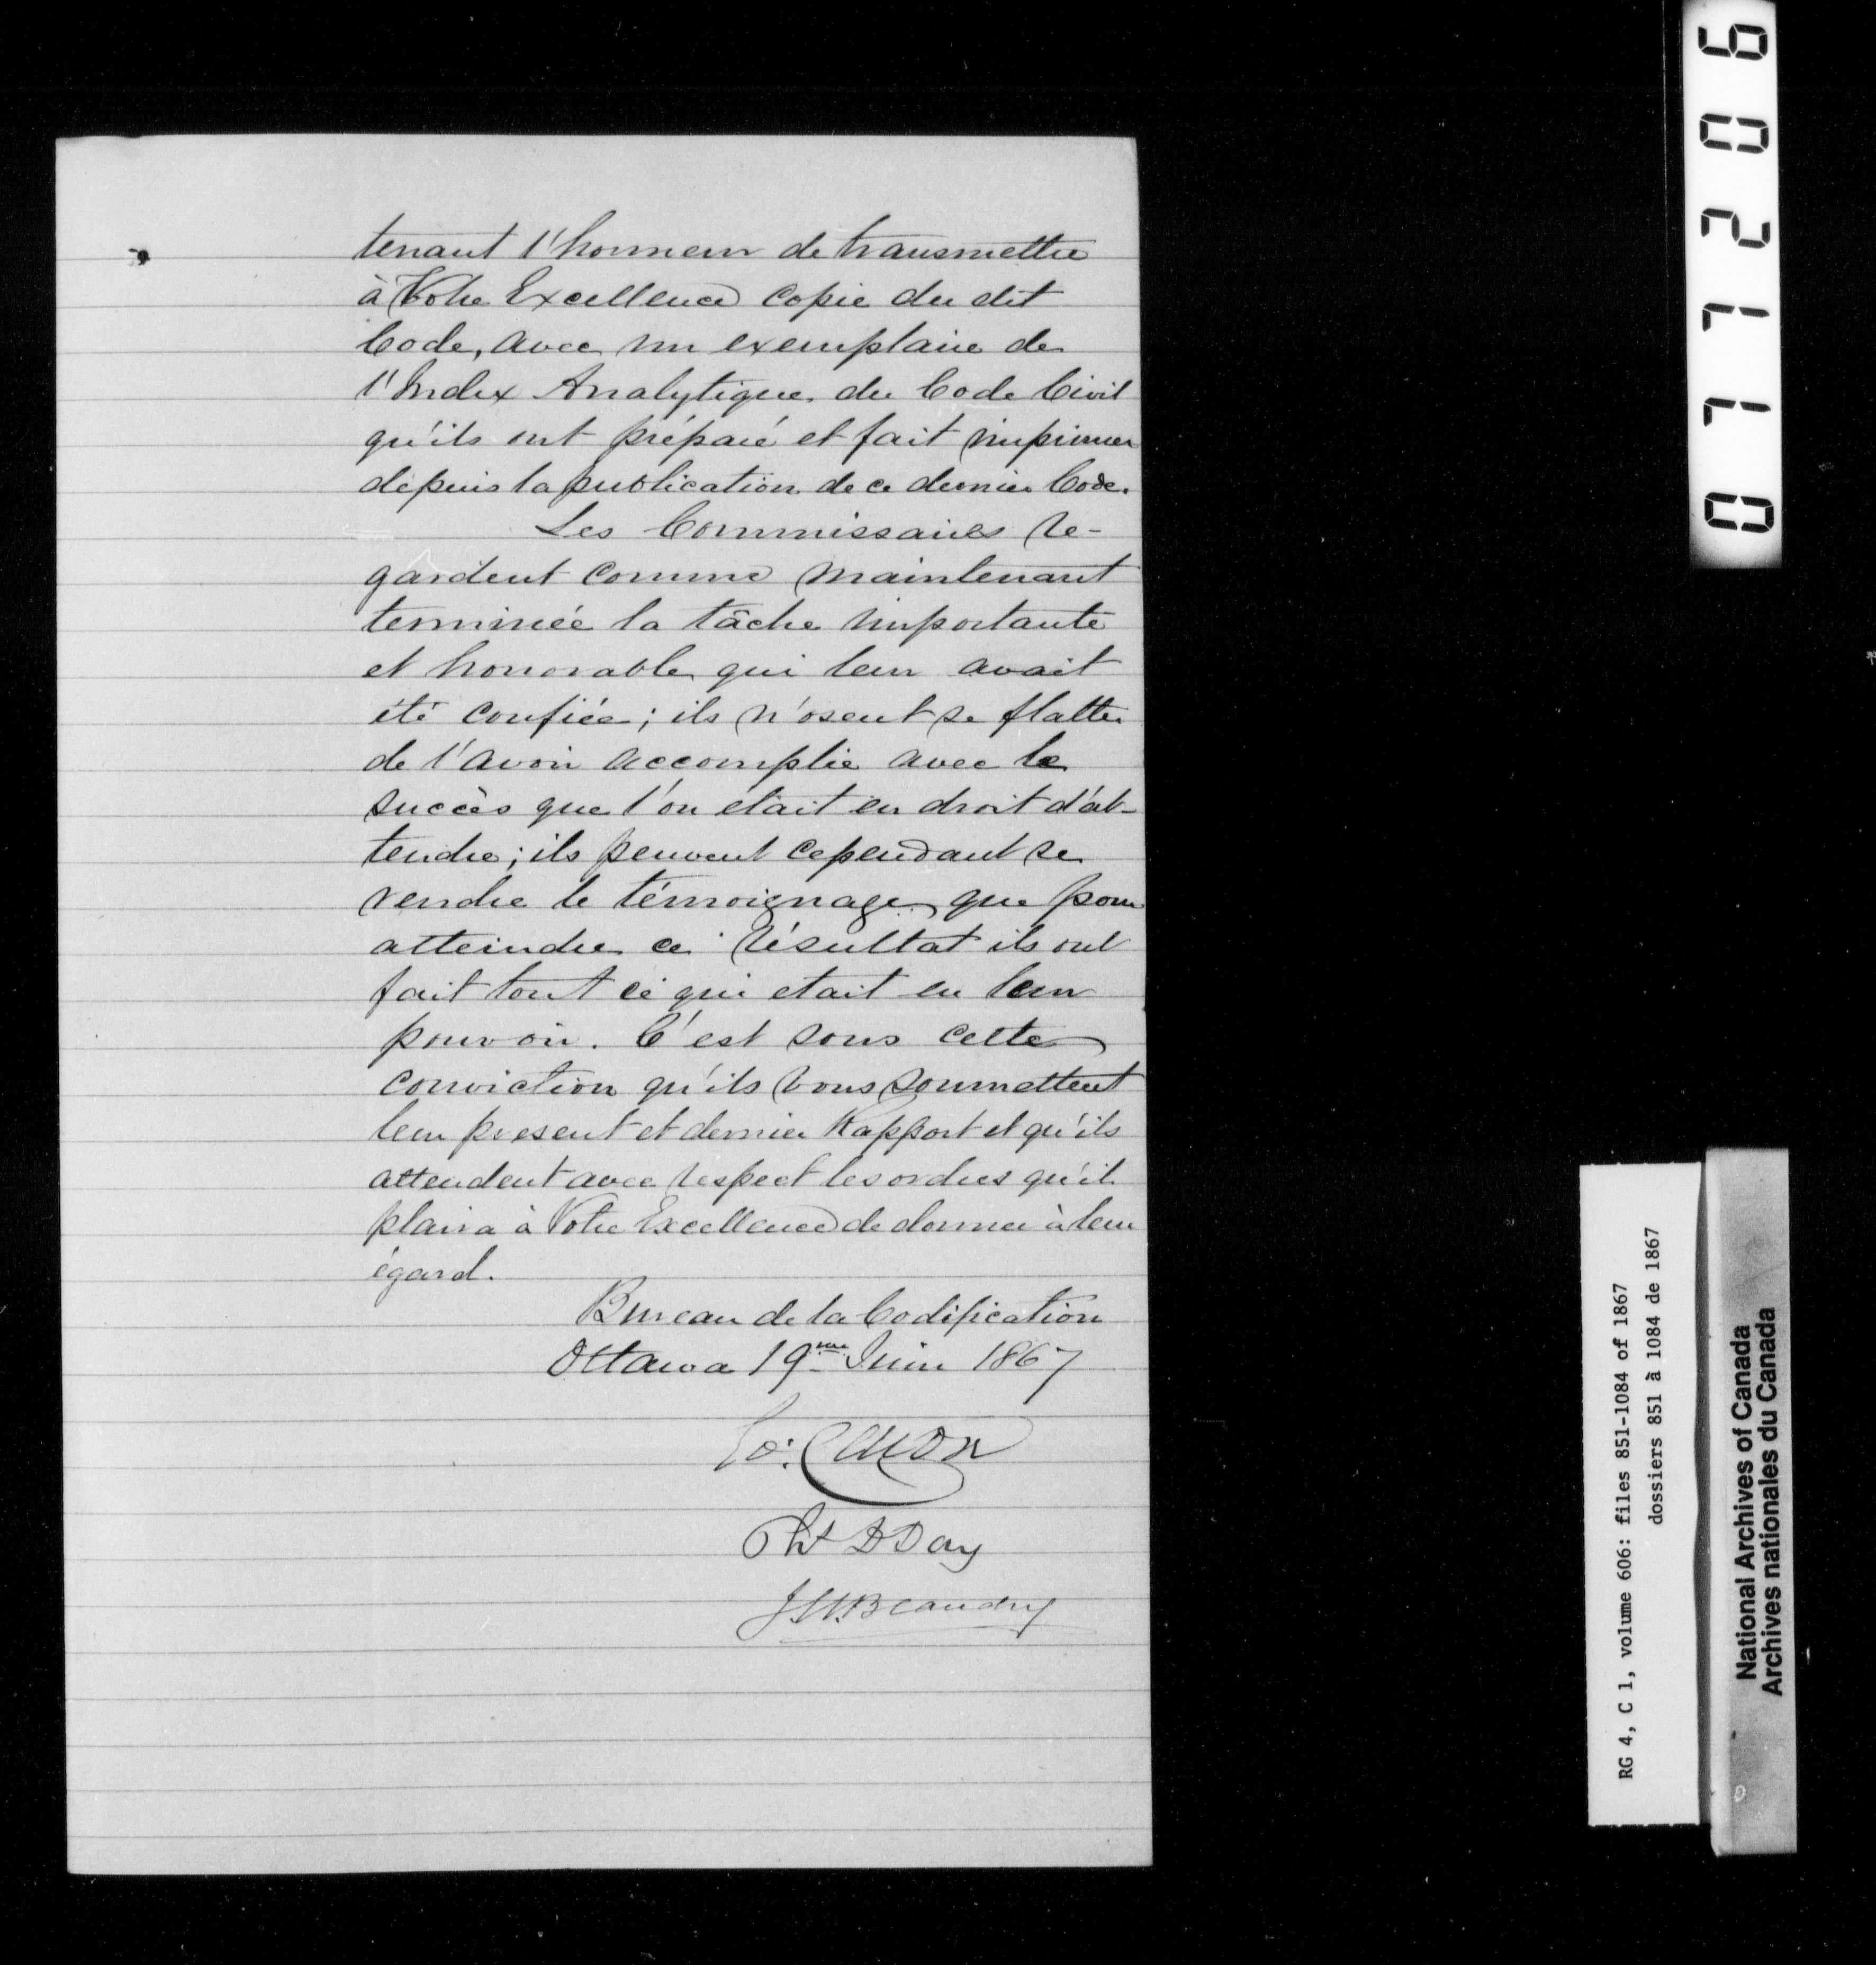 tenant l'honneur de transmettre
à Votre Excellence copie du dit
Code, avec un exemplaire de
l'Index Analytique du Code Civil
qu'ils ont préparé et fait imprimer
depuis la publication de ce dernier Code.
Les Commissaires re-
gardent comme maintenant
terminée la tâche importante
et honorable qui leur avait
été confiée; ils n'osent se flatter
de l'avoir accomplie avec le
succès que l'on était en droit d'at-
tendre; ils peuvent cependant se
rendre le témoignage que pour
atteindre ce résultat ils ont
fait tout ce qui etait en leur
pouvoir. C'est sous cette
conviction qu'ils vous soumettent
leur present et dernier Rapport et qu'ils
attendent avec respect les ordres qu'il
plaira à Votre Excellence de donner à leur
égard.
Bureau de la Codification
Ottawa 19me Juin 1867
Caron
D Day
Beaudry
077206
RG 4, C 1, volume 606: files 851-1084 of 1867
dossiers 851 à 1084 de 1867
National Archives of Canada
Archives nationales du Canada